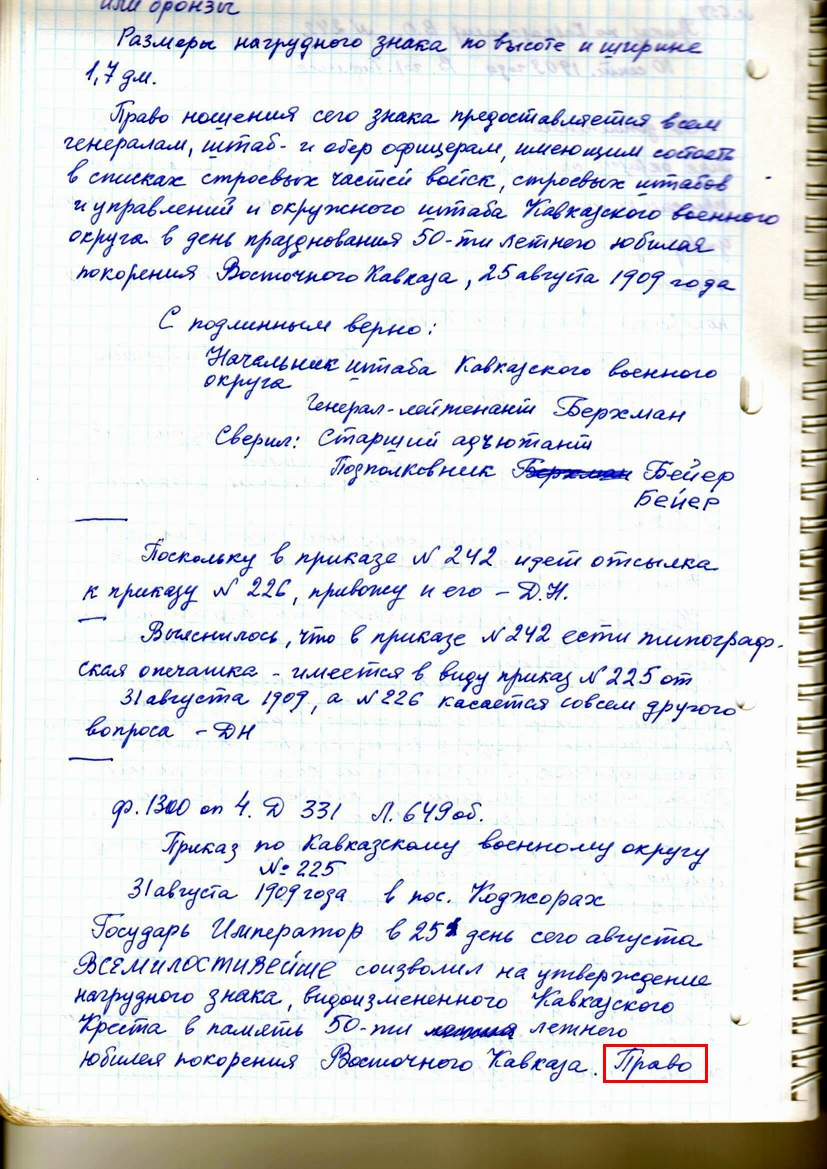 или бронзы
Размеры нагрудного знака по высоте и ширине
1,7 дм.
Право ношения сего знака предоставляется всем
генералам, штаб- и обер офицерам, имеющим состоять
в списках строевых частей войск, строевых штабов
и управлений и окружного штаба Кавказского военного
округа в день празднования 50-ти летнего юбилая
покорения Восточного Кавказа, 25 августа 1909 года
С подлинным верно:
Начальник штаба Кавказского военного
округа
Генерал-лейтенант Берхман
Сверил: Старший адъютант
Подполковник Берхман Бейер
Бейер
Поскольку в приказе N 242 идет отсылка
к приказу N 226, привожу и его - Д.Н.
Выяснилось, что в приказе N 242 есть типограф-
ская опечатка - имеется в виду приказ N 225 от
31 августа 1909, а N 226 касается совсем другого
вопроса - ДН
ф. 1300 оп 4. Д 331 Л. 649 об.
Приказ по Кавказскому военному округу
№ 225
31 августа 1909 года в пос. Коджорах
Государь Император в 25 день сего августа
ВСЕМИЛОСТИВЕЙШЕ соизволил на утверждение
нагрудного знака, видоизмененного Кавказского
Креста в память 50-ти летнего
юбилея покорения Восточного Кавказа. Право